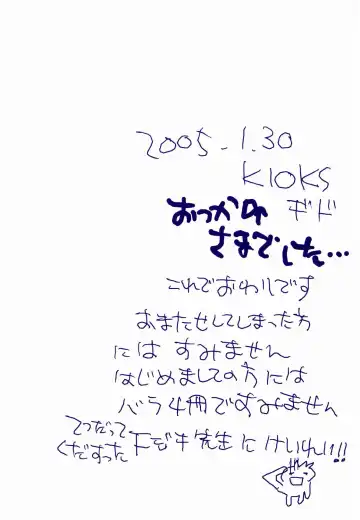 2005.1.30
KIOKS
ギド
おつかれ
さまでした…
これでおわりです
おまたせしてしまった方
には すみません
はじめましての方には
バラ4冊ですみません
てつだって
くだすった
先生に けいれい!!